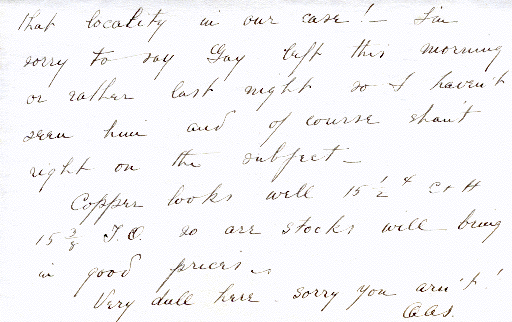 that locality in our case! – I'm
sorry to say Gay left this morning
or rather last night so I haven't
seen him and of course shan't
right on the subject –
Copper looks well 15 1/2 C & H
15 3/8 T.O. so are stocks will bring
in good prices
Very dull here. sorry you arn't!